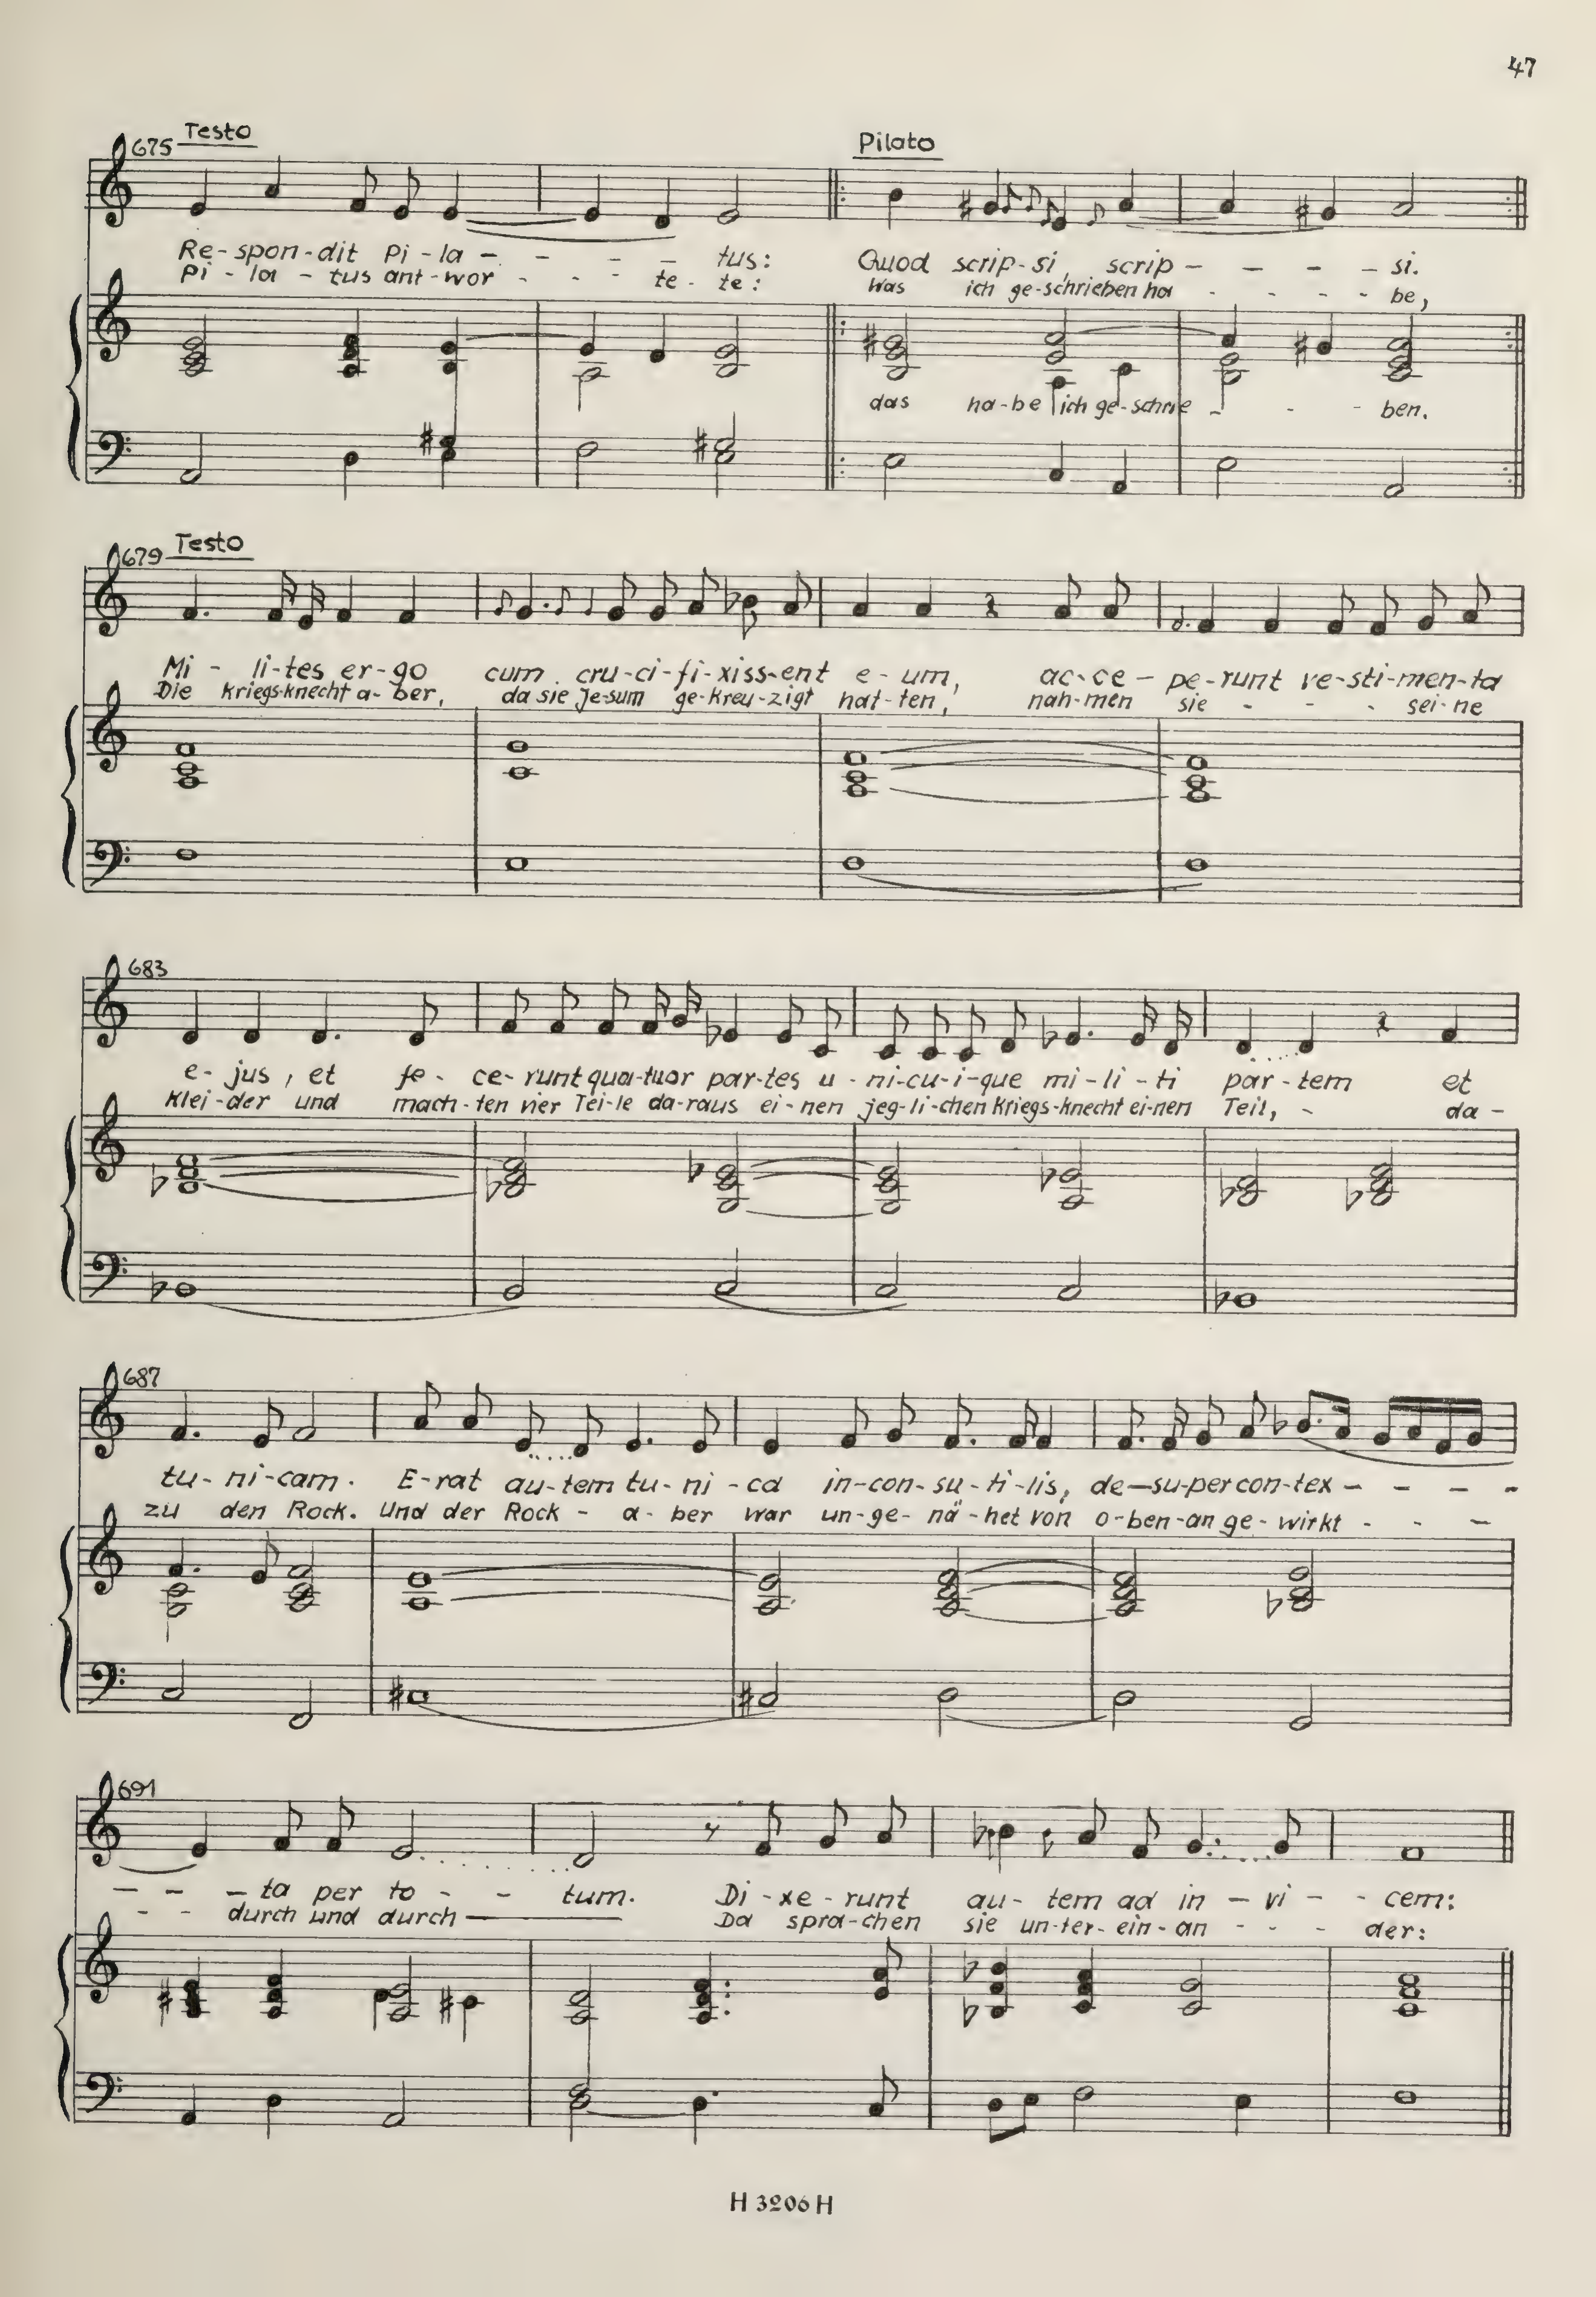 47
675 Testo Pilato
Re-spon-dit Pi-la - - - - tus: Quod scrip-si, scrip - - - - si.
Pi-la-tus ant-wor - - - te-te: Was ich ge-schrieben ha - - - - be,
das ha-be ich ge-schrie - - - ben.
679 Testo
Mi-li-tes er-go cum cru-ci-fi-xiss-ent e-um, ac-ce-pe-runt ve-sti-men-ta
Die Kriegs-knecht a-ber, da sie Je-sum ge-kreu-zigt hat-ten, nah-men sie - - - sei-ne
683
e-jus, et fe-ce-runt qua-tuor par-tes u-ni-cu-i-que mi-li-ti par-tem et
Klei-der und mach-ten vier Tei-le da-raus ei-nen jeg-li-chen Kriegs-knecht ei-nen Teil, - da-
687
tu-ni-cam. E-rat au-tem tu-ni-ca in-con-su-ti-lis, de-su-per con-tex - - - -
zu den Rock. Und der Rock - a-ber war un-ge-nä-het von o-ben-an ge-wirkt - - -
691
- - - ta per to - - tum. Di-xe-runt au-tem ad in-vi - - cem:
- - durch und durch — Da spra-chen sie un-ter-ein-an - - - der:
H 3206 H